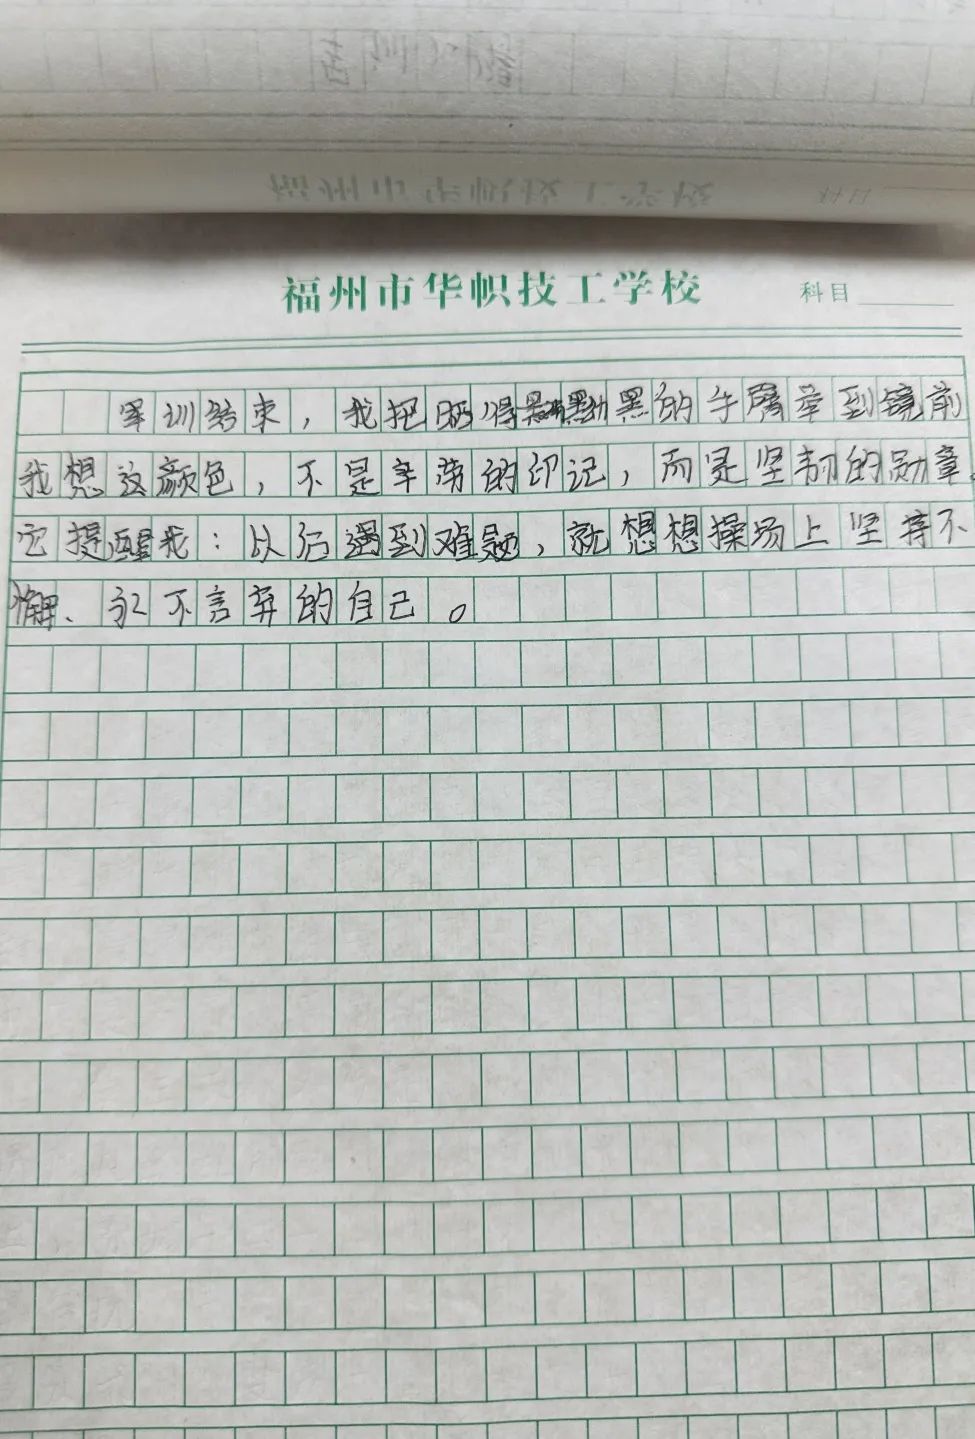 福州市华帜技工学校
科目
军训结束，我把晒得黑黝黑的手臂举到镜前
我想这颜色，不是辛劳的印记，而是坚韧的勋章。
它提醒我：以后遇到难题，就想想操场上坚持不
懈、永不言弃的自己。